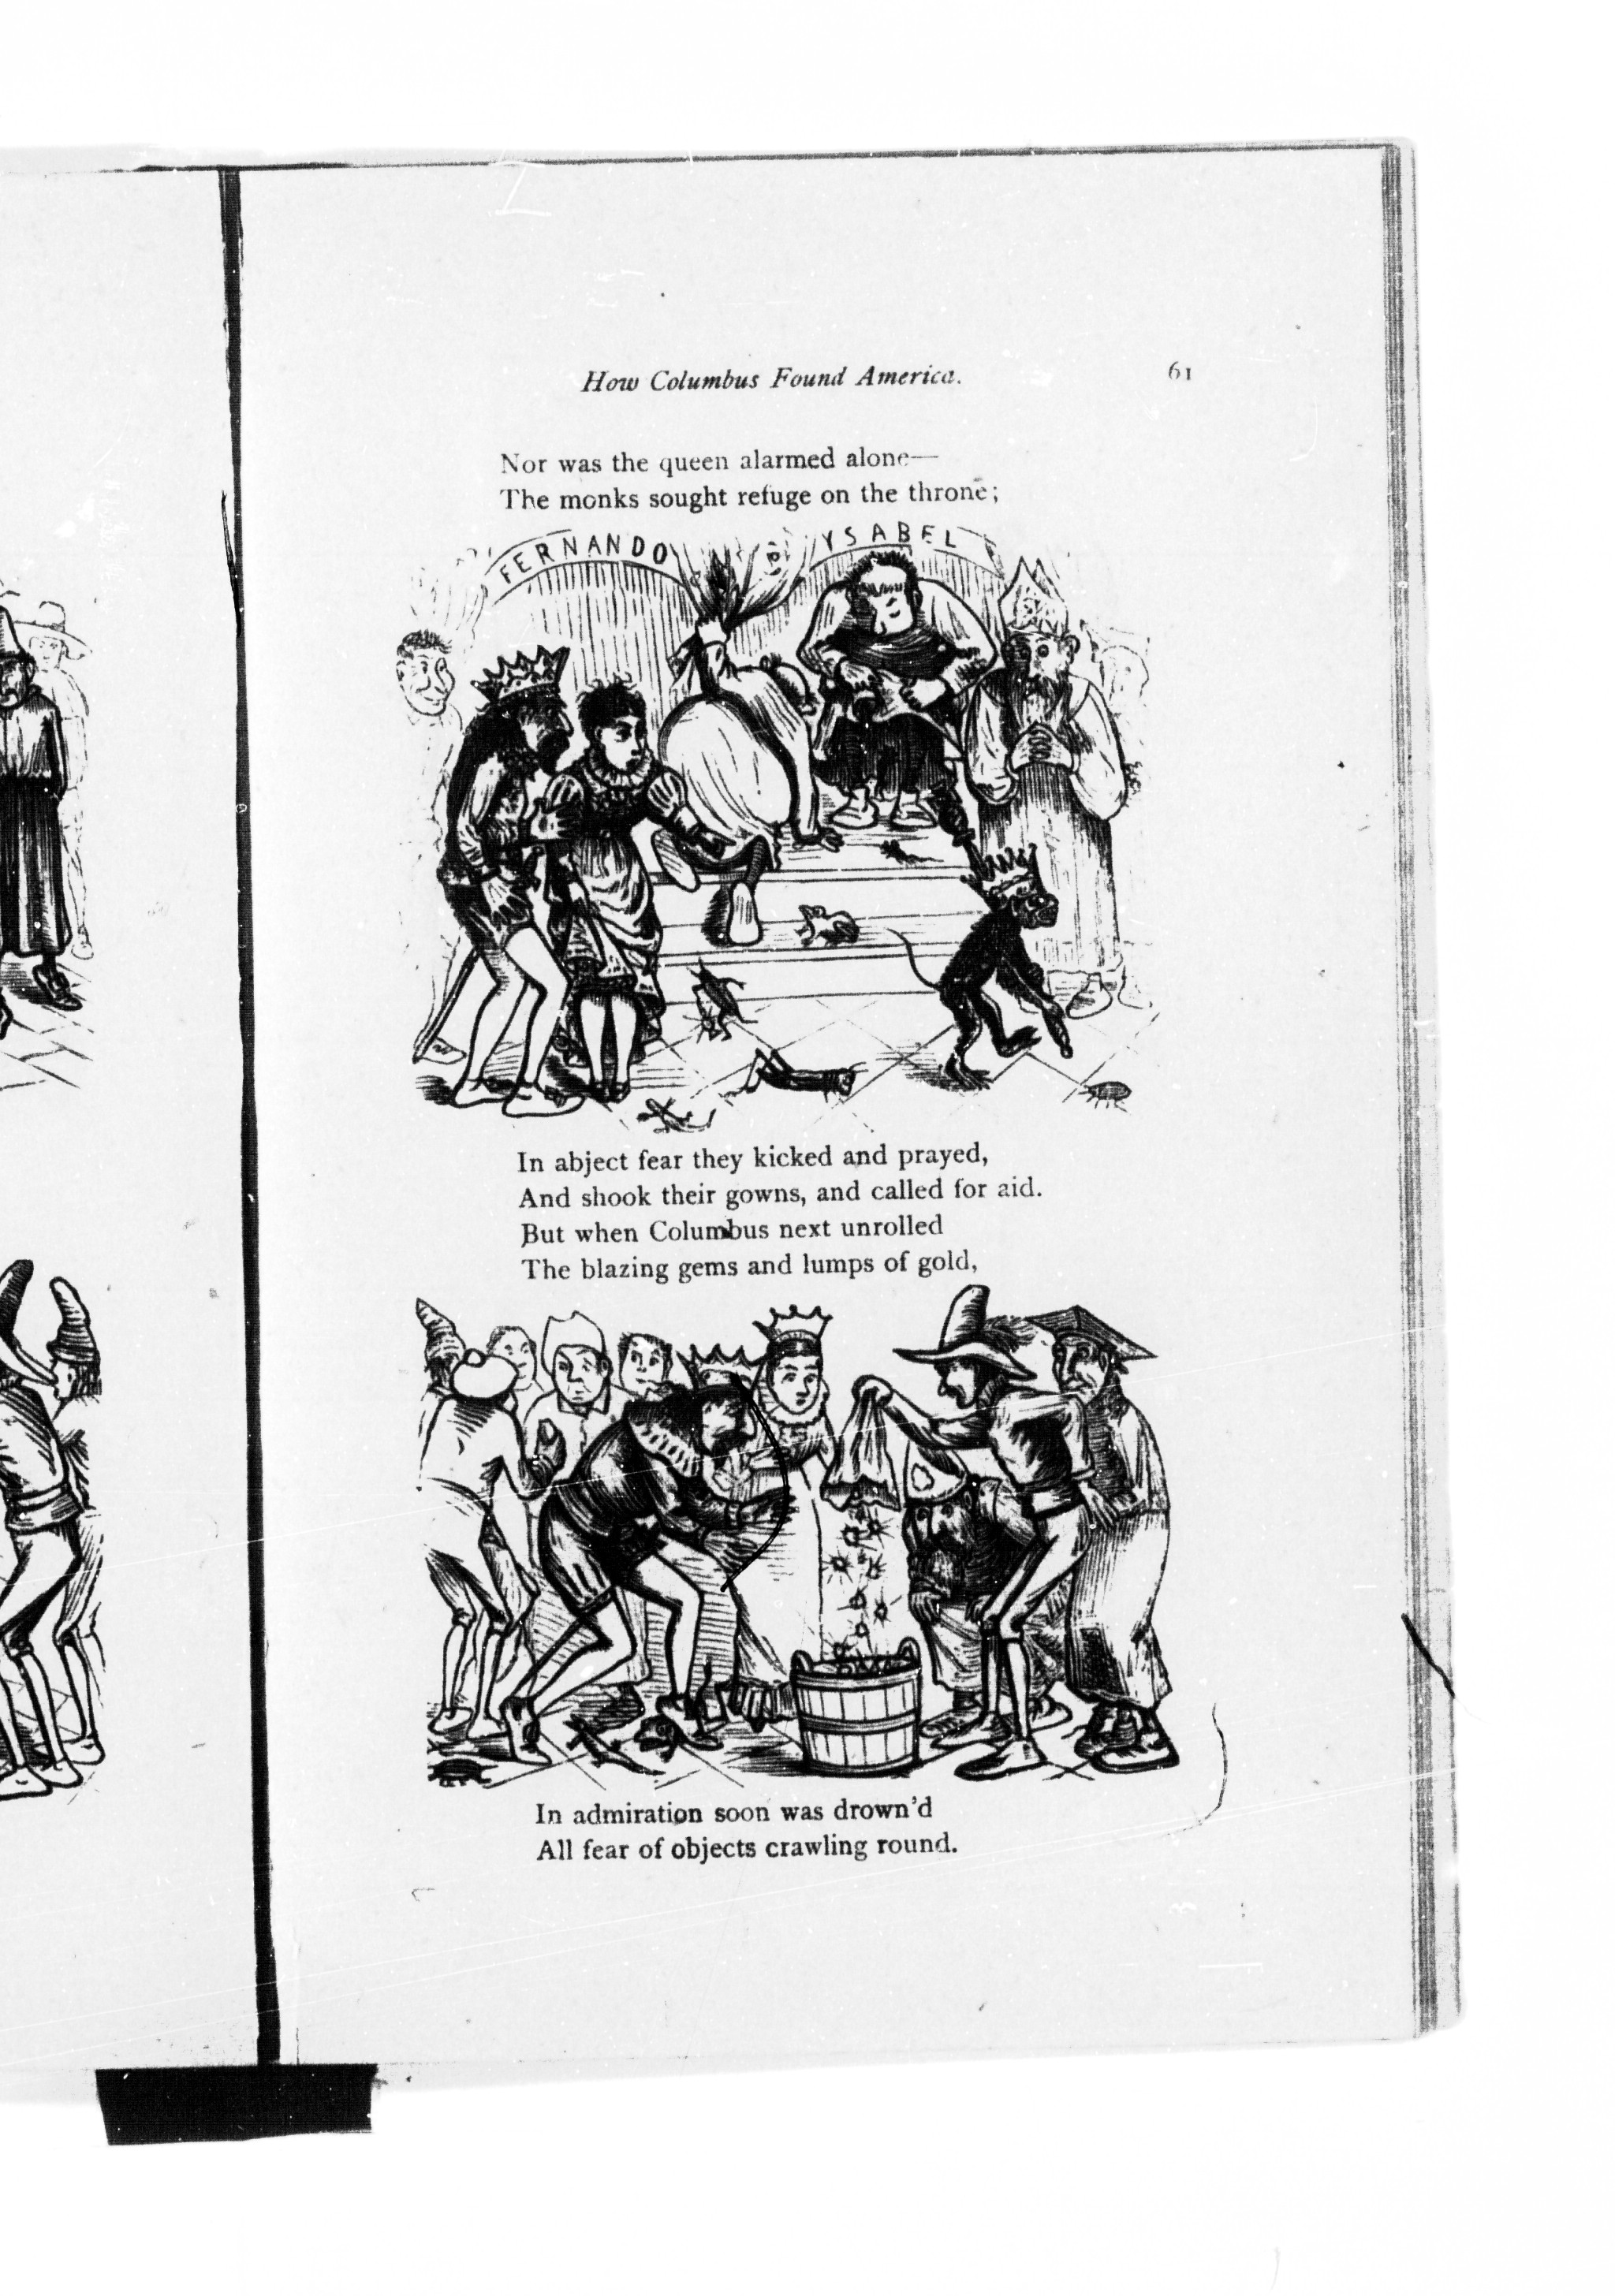 How Columbus Found America.
61
Nor was the queen alarmed alone—
The monks sought refuge on the throne;
FERNANDO
YSABEL
In abject fear they kicked and prayed,
And shook their gowns, and called for aid.
But when Columbus next unrolled
The blazing gems and lumps of gold,
In admiration soon was drown'd
All fear of objects crawling round.